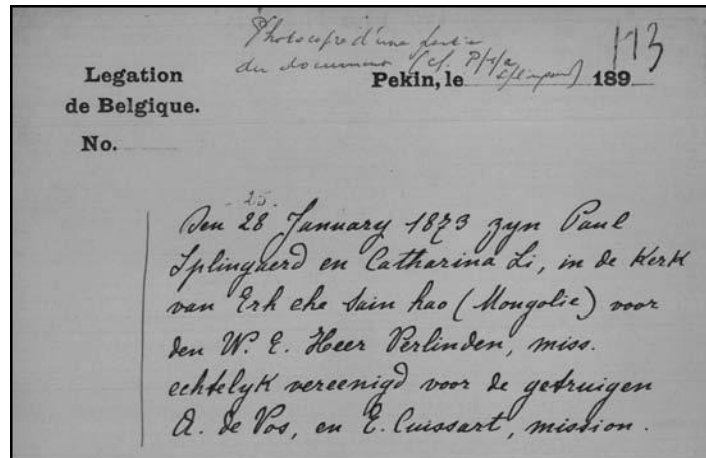 Photocopie d'une partie
du document (cf. P/1/a
Splingaerd)
113
Legation
de Belgique.
Pekin, le 189
No.
25.
Den 28 January 1873 zyn Paul
Splingaerd en Catharina Li, in de Kerk
van Erh che sain hao (Mongolie) voor
den W. E. Heer Verlinden, miss.
echtelyk vereenigd voor de getuigen
A. de Vos, en E. Cuissart, mission.